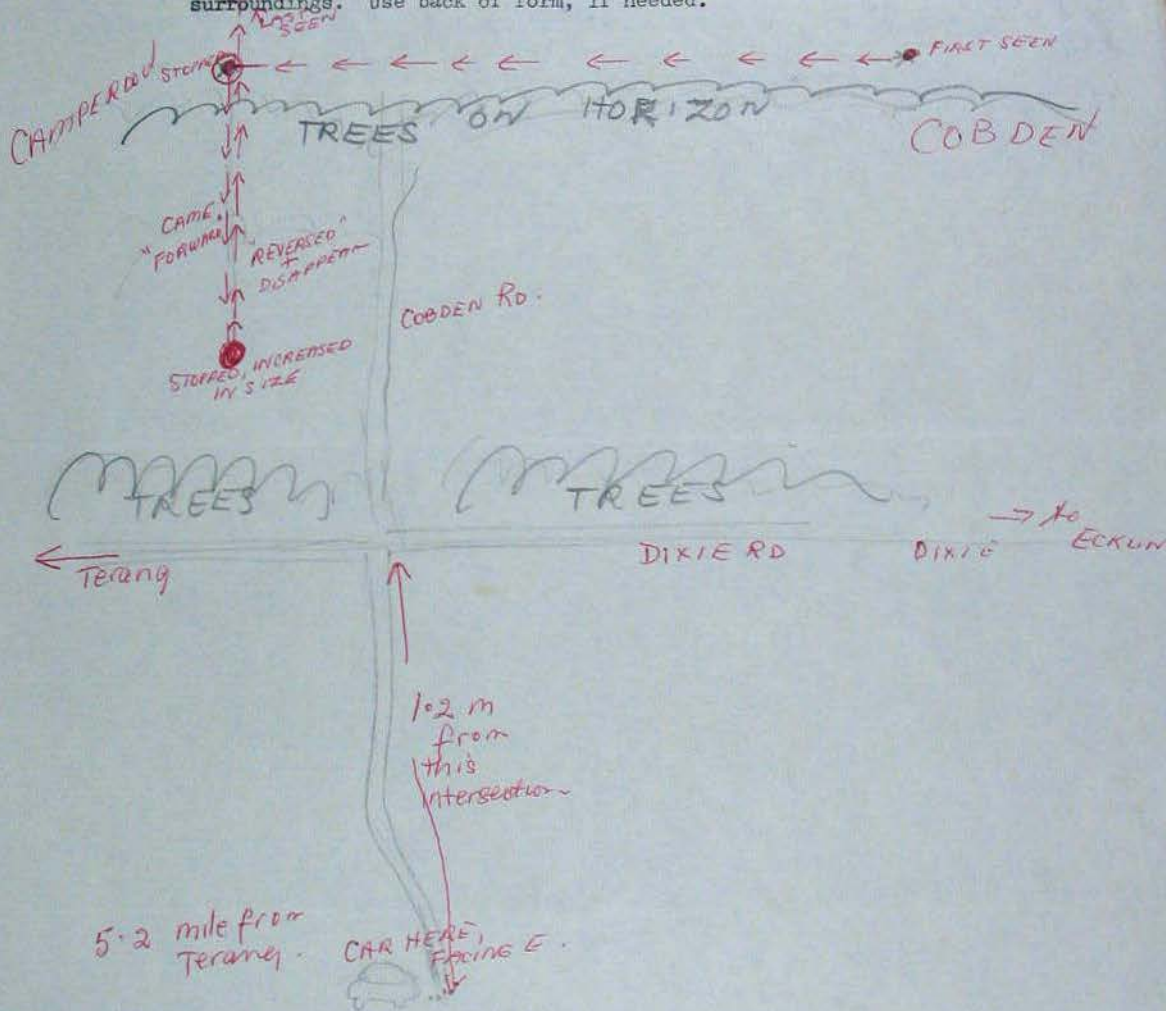 surroundings. Use back of form, if needed.
LAST
SEEN
STOPPED
FIRST SEEN
CAMPERDOWN
TREES ON HORIZON
COBDEN
CAME
"FORWARD"
"REVERSED"
+
DISAPPEAR
COBDEN RD.
STOPPED, INCREASED
IN SIZE
TREES
TREES
→ to
ECKLIN
Terang
DIXIE RD
DIXIE
1.2 m
from
this
intersection
5.2 mile from
Terang.
CAR HERE,
FACING E.